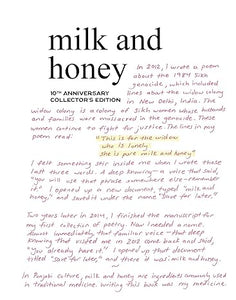 milk and
honey
10TH ANNIVERSARY
COLLECTOR'S EDITION
In 2012, I wrote a poem
about the 1984 Sikh
genocide, which included
lines about the widow colony
in New Delhi, India. The
widow colony is a colony of Sikh women whose husbands
and families were massacred in the genocide. These
women continue to fight for justice. The lines in my
poem read:
"this is for the widow
who is lonely
she is pure milk and honey"
I felt something stir inside me when I wrote those
last three words. A deep knowing—a voice that said,
"you will use that phrase somewhere else—remember
it." I opened up a new document, typed "milk and
honey," and saved it under the name "save for later."
Two years later in 2014, I finished the manuscript for
my first collection of poetry. Now I needed a name.
Almost immediately, that familiar voice—that deep
knowing that visited me in 2012 came back and said,
"you already have it." I opened up that document
titled "save for later," and there it was: milk and honey.
In Punjabi culture, milk and honey are ingredients commonly used
in traditional medicine. Writing this book was my medicine.